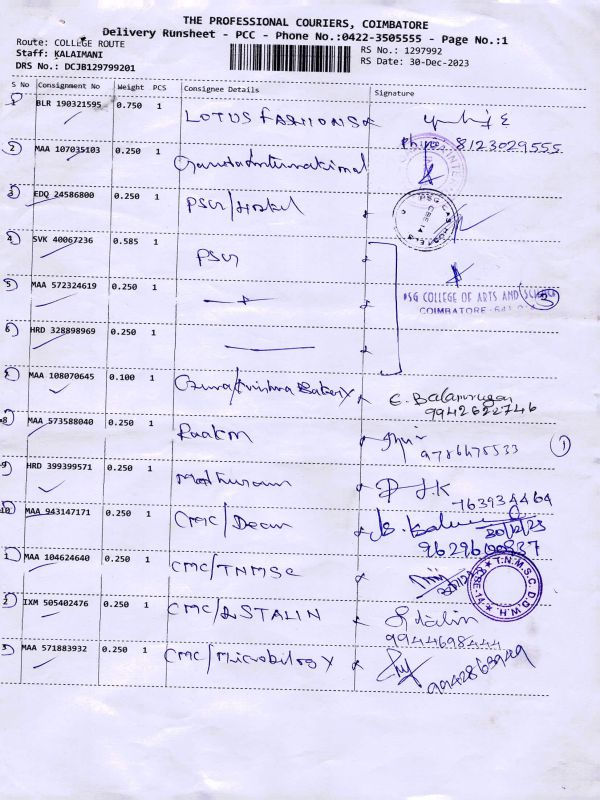 THE PROFESSIONAL COURIERS, COIMBATORE
Delivery Runsheet - PCC - Phone No.:0422-3505555 - Page No.:1
Route: COLLEGE ROUTE
Staff: KALAIMANI
DRS No.: DCJB129799201
RS No.: 1297992
RS Date: 30-Dec-2023
S No Consignment No Weight PCS Consignee Details Signature
BLR 190321595 0.750 1 LOTUS FASHIONS
8123029555
2 MAA 107035103 0.250 1 International
3 EDQ 24586800 0.250 1 PSG/Hostel
4 SVK 40067236 0.585 1 PSG
PSG COLLEGE OF ARTS AND SCIENCE
COIMBATORE-641 014
5 MAA 572324619 0.250 1
6 HRD 328898969 0.250 1
MAA 108070645 0.100 1 Krishna Bakery
E. Balamurugan
9942622746
8 MAA 573588040 0.250 1 Raakm
9786475533
1
9 HRD 399399571 0.250 1
7639344464
10 MAA 943147171 0.250 1 CMC/Dean
30/12/23
9629600837
1 MAA 104624640 0.250 1 CMC/TNMSC
T.N.M.S.C.
CBE-14
2 IXM 505402476 0.250 1 CMC/STALIN
Stalin
9944698444
3 MAA 571883932 0.250 1 CMC/Microbilogy
9942863949